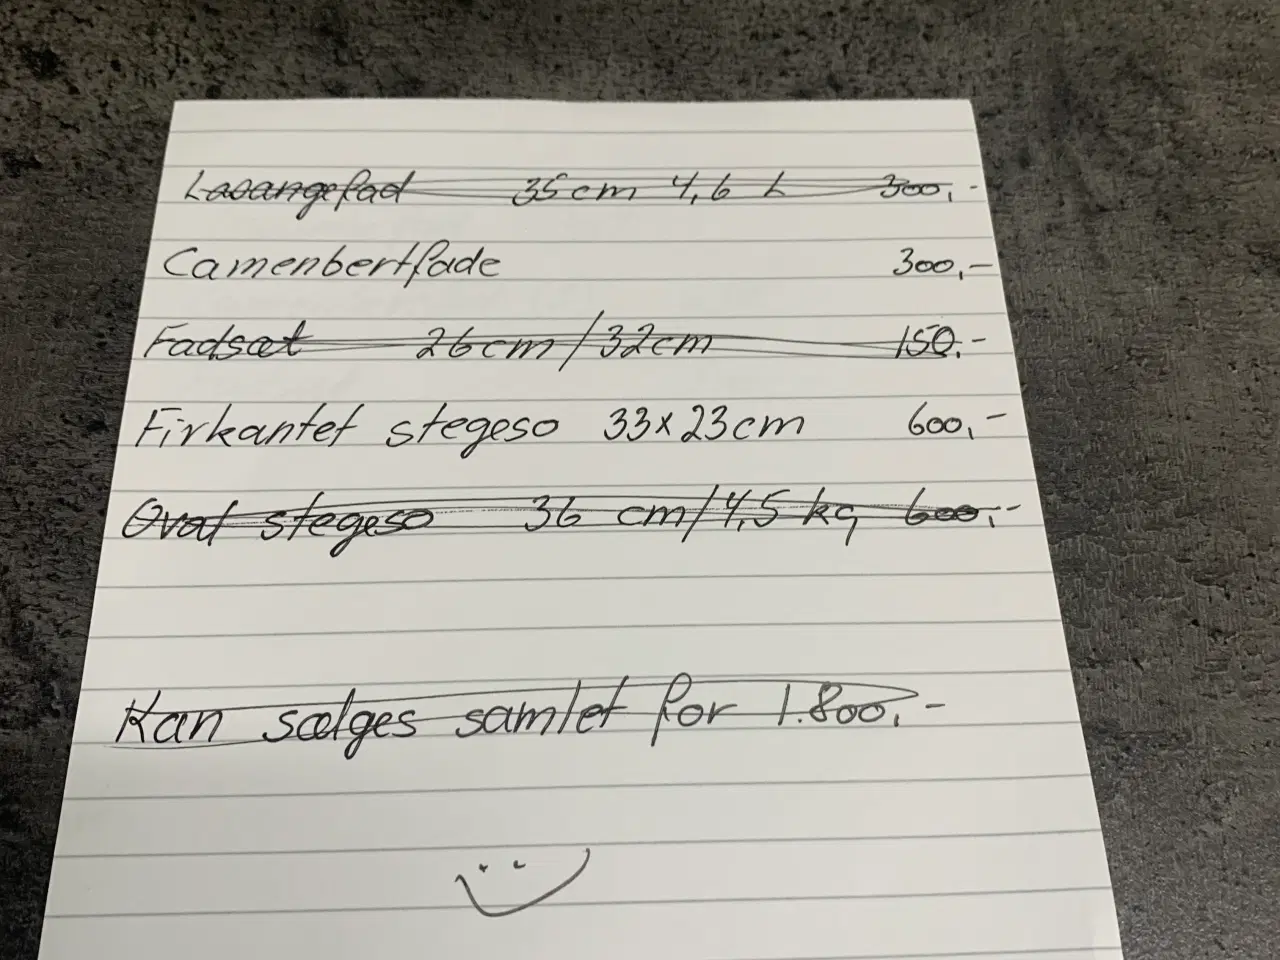 Lasangefad 35cm 4,6 L 300,-
Camenbertfade 300,-
Fadsæt 26cm/32cm 150.-
Firkantet stegeso 33x23cm 600,-
Oval stegeso 36 cm/4,5 kg 600,-
Kan sælges samlet for 1.800,-